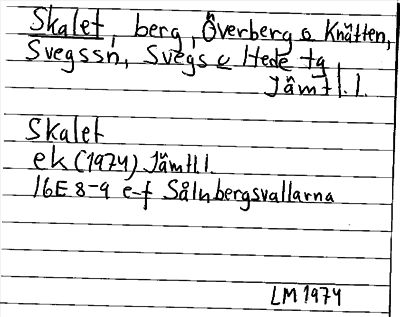 Skalet, berg, Överberg o Knätten,
Svegssn, Svegs o Hede tg
Jämtl.l.
Skalet
ek (1974) Jämtl l.
16E 8-9 e-f Sålnbergsvallarna
LM 1974